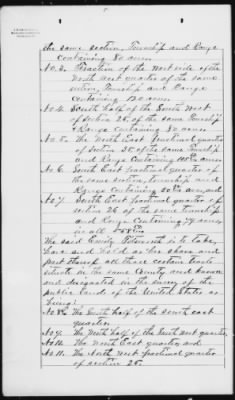 the same section, Township and Range
containing 80 acres
No. 3. Fraction of the West side of the
North west quarter of the same
section, Township and Range
containing 120 acres
No 4. South half of the South West
of section 25 of the same Township
& Range containing 80 acres
No. 5. The North East fractional quarter
of section 35 of the same Township
and Range Containing acres
No 6. South East fractional quarter of
the same section, township and
Range containing acres, and
No 7. North East fractional quarter of
section 26 of the same Township
and Range Containing 79 acres
in all
The said Emily Peterson is to take,
have and hold as her share and
part thereof all those certain tracts
situate in the same County and known
and designated in the survey of the
public lands of the United States as
being:
No 8. The South half of the south east
quarter
No 9. The North half of the South east quarter,
No 10. The North East quarter, and
No 11. The North West fractional quarter
of section 25.